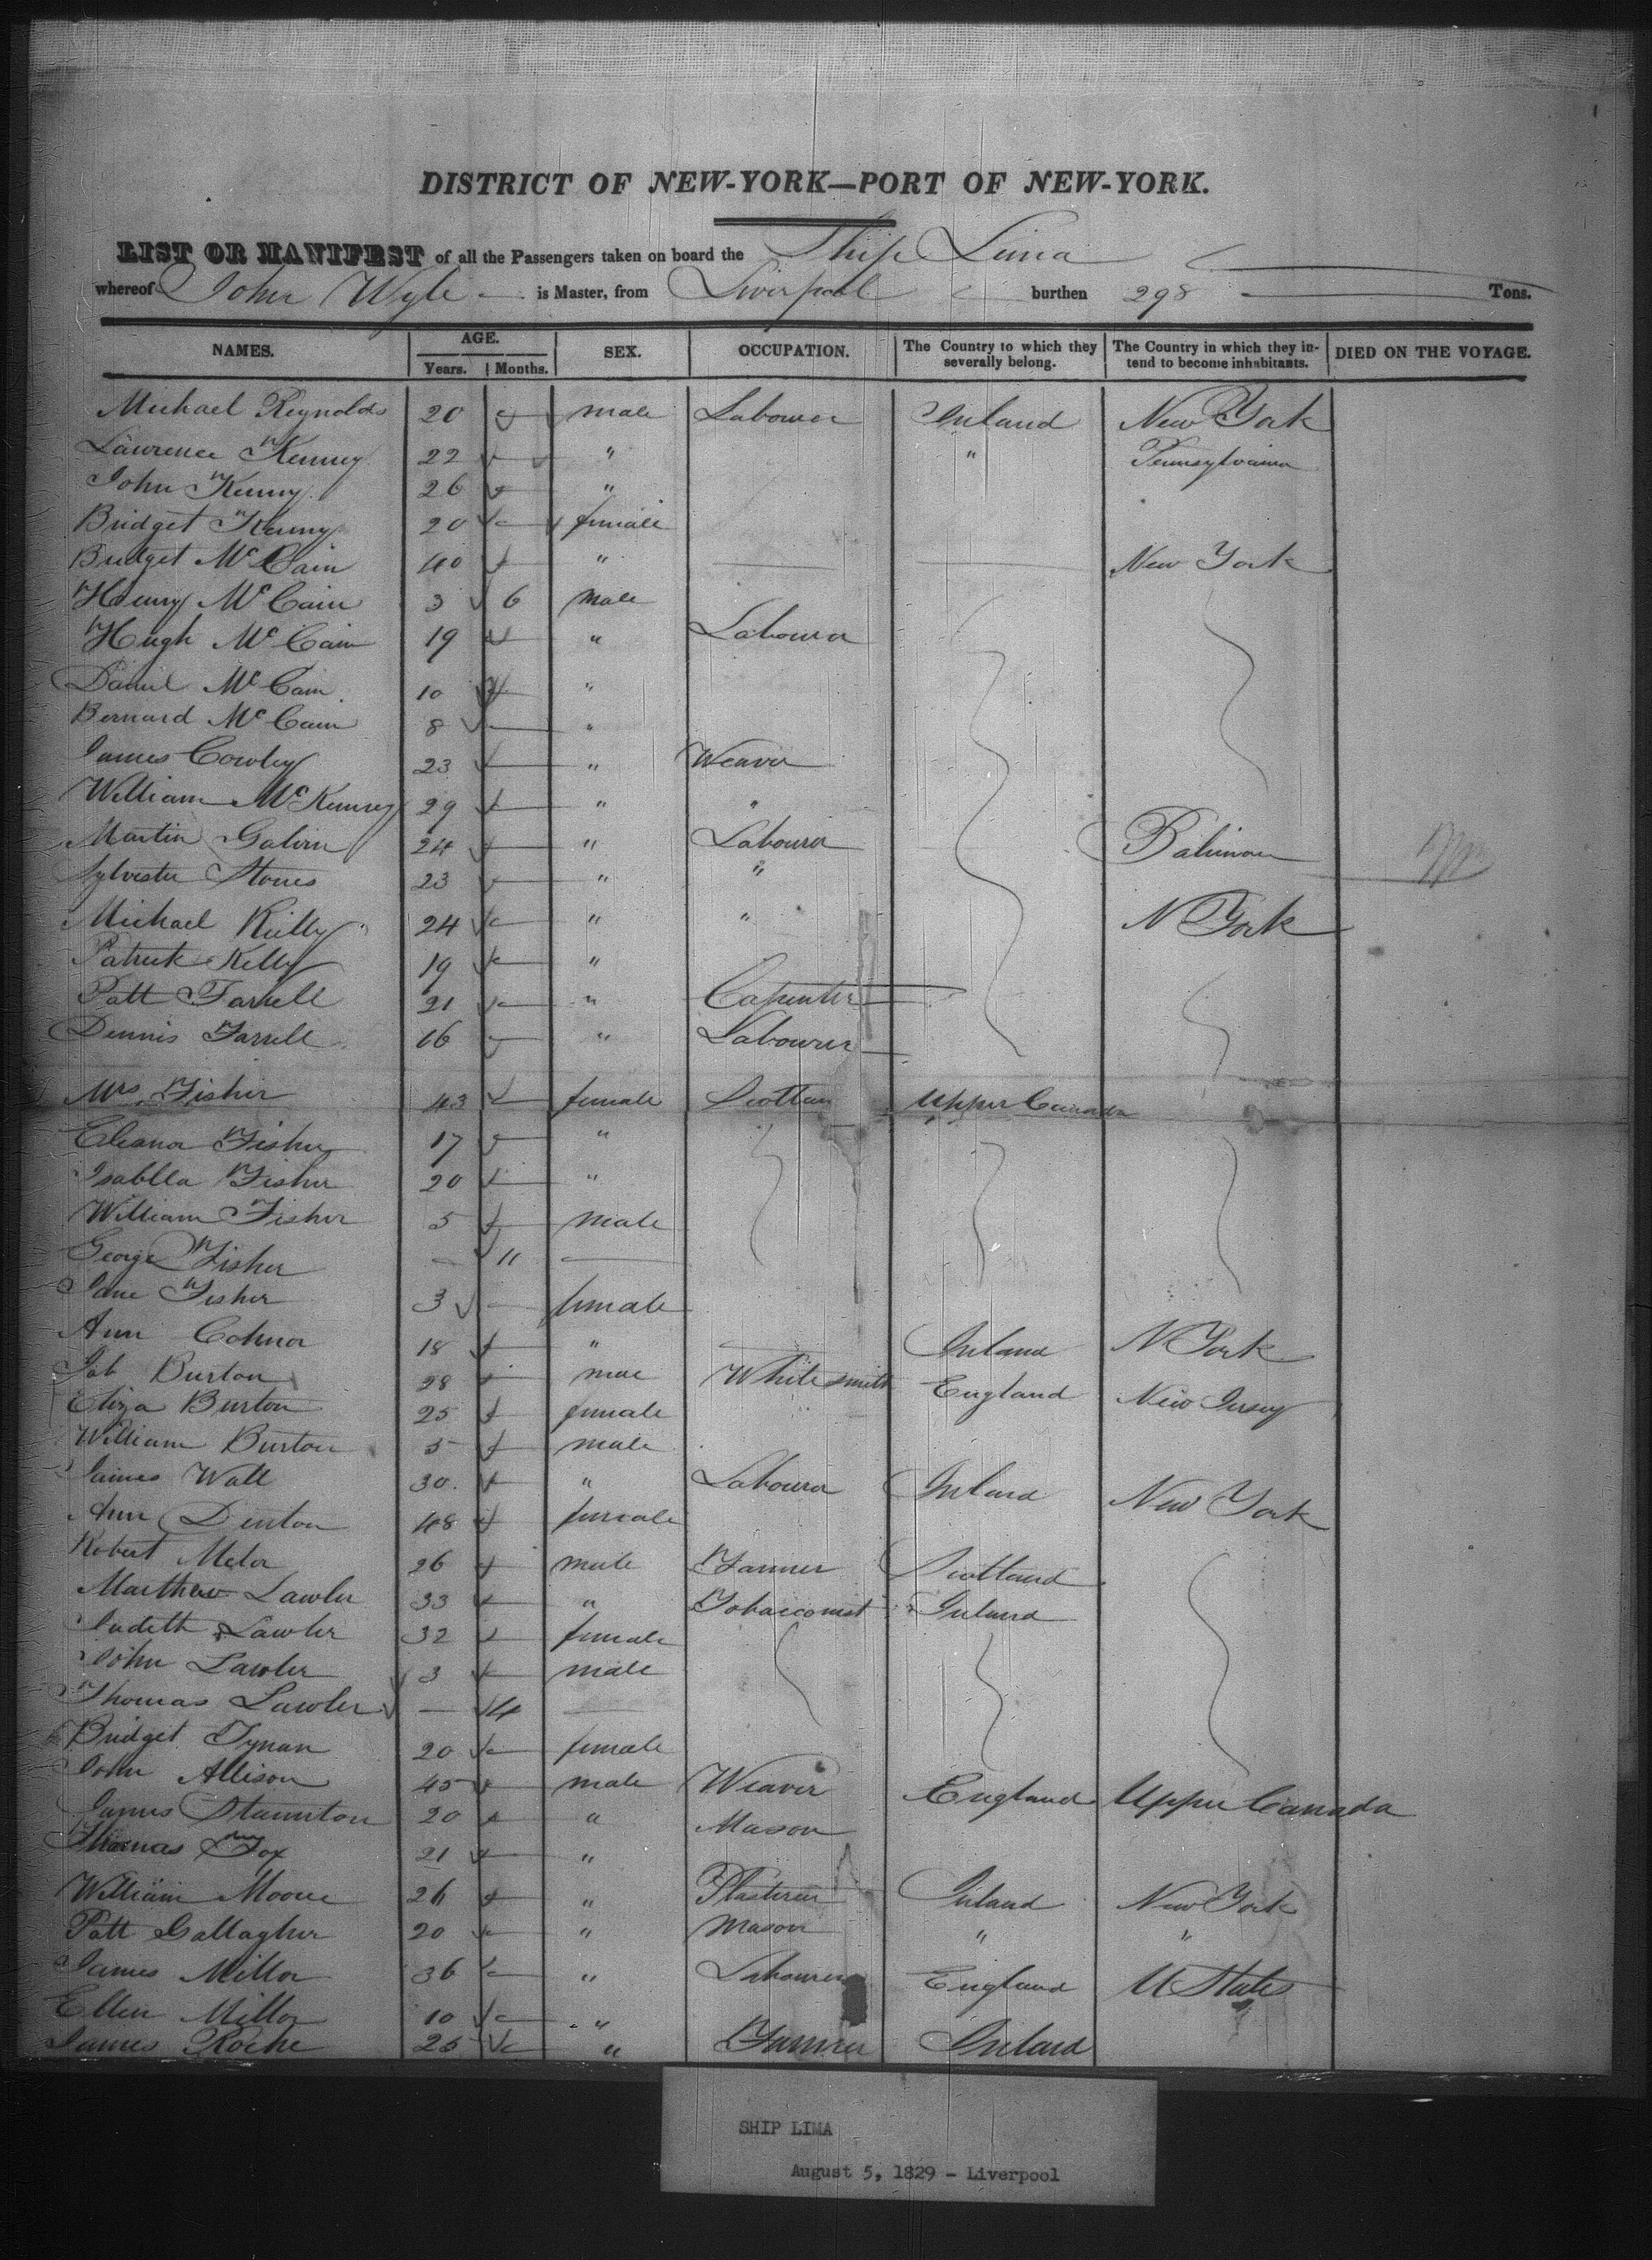 DISTRICT OF NEW-YORK—PORT OF NEW-YORK.
LIST OR MANIFEST of all the Passengers taken on board the Ship Lima
whereof John Wyle is Master, from Liverpool burthen 298 Tons.
NAMES. AGE. Years. Months. SEX. OCCUPATION. The Country to which they severally belong. The Country in which they intend to become inhabitants. DIED ON THE VOYAGE.
Michael Reynolds 20 male Labourer Ireland New York
Lawrence Kenney 22 " " Pennsylvania
John Kenny 26 "
Bridget Kenny 20 female
Bridget McCain 40 " New York
Henry McCain 3 6 male
Hugh McCain 19 " Labourer
Daniel McCain 10 "
Bernard McCain 8 "
James Cowley 23 " Weaver
William McKenney 29 " "
Martin Galvin 24 " Labourer Baltimore
Sylvester Stones 23 " "
Michael Kielly 24 " " N York
Patrick Kelly 19 "
Patt Farrell 21 " Carpenter
Dennis Farrell 16 " Labourer
Mrs. Fisher 43 female Scotland Upper Canada
Eleanor Fisher 17 "
Isablla Fisher 20 "
William Fisher 5 male
George Fisher — 11 —
Jane Fisher 3 female
Ann Cohnor 18 " Ireland N York
Job Burton 28 male Whitesmith England New Jersey
Eliza Burton 25 female
William Burton 5 male
James Wall 30 " Labourer Ireland New York
Ann Denton 48 female
Robert Melor 26 male Farmer Scotland
Matthew Lawler 33 " Tobacconist Ireland
Judeth Lawler 32 female
John Lawler 3 male
Thomas Lawler — 4 —
Bridget Tynan 20 female
John Allison 45 male Weaver England Upper Canada
James Staunton 20 " Mason
Thomas Fox 21 "
William Moore 26 " Plasterer Ireland New York
Patt Gallagher 20 " Mason " "
James Millor 36 " Labourer England U States
Ellen Millor 10 "
James Roche 25 " Farmer Ireland
SHIP LIMA
August 5, 1829 - Liverpool